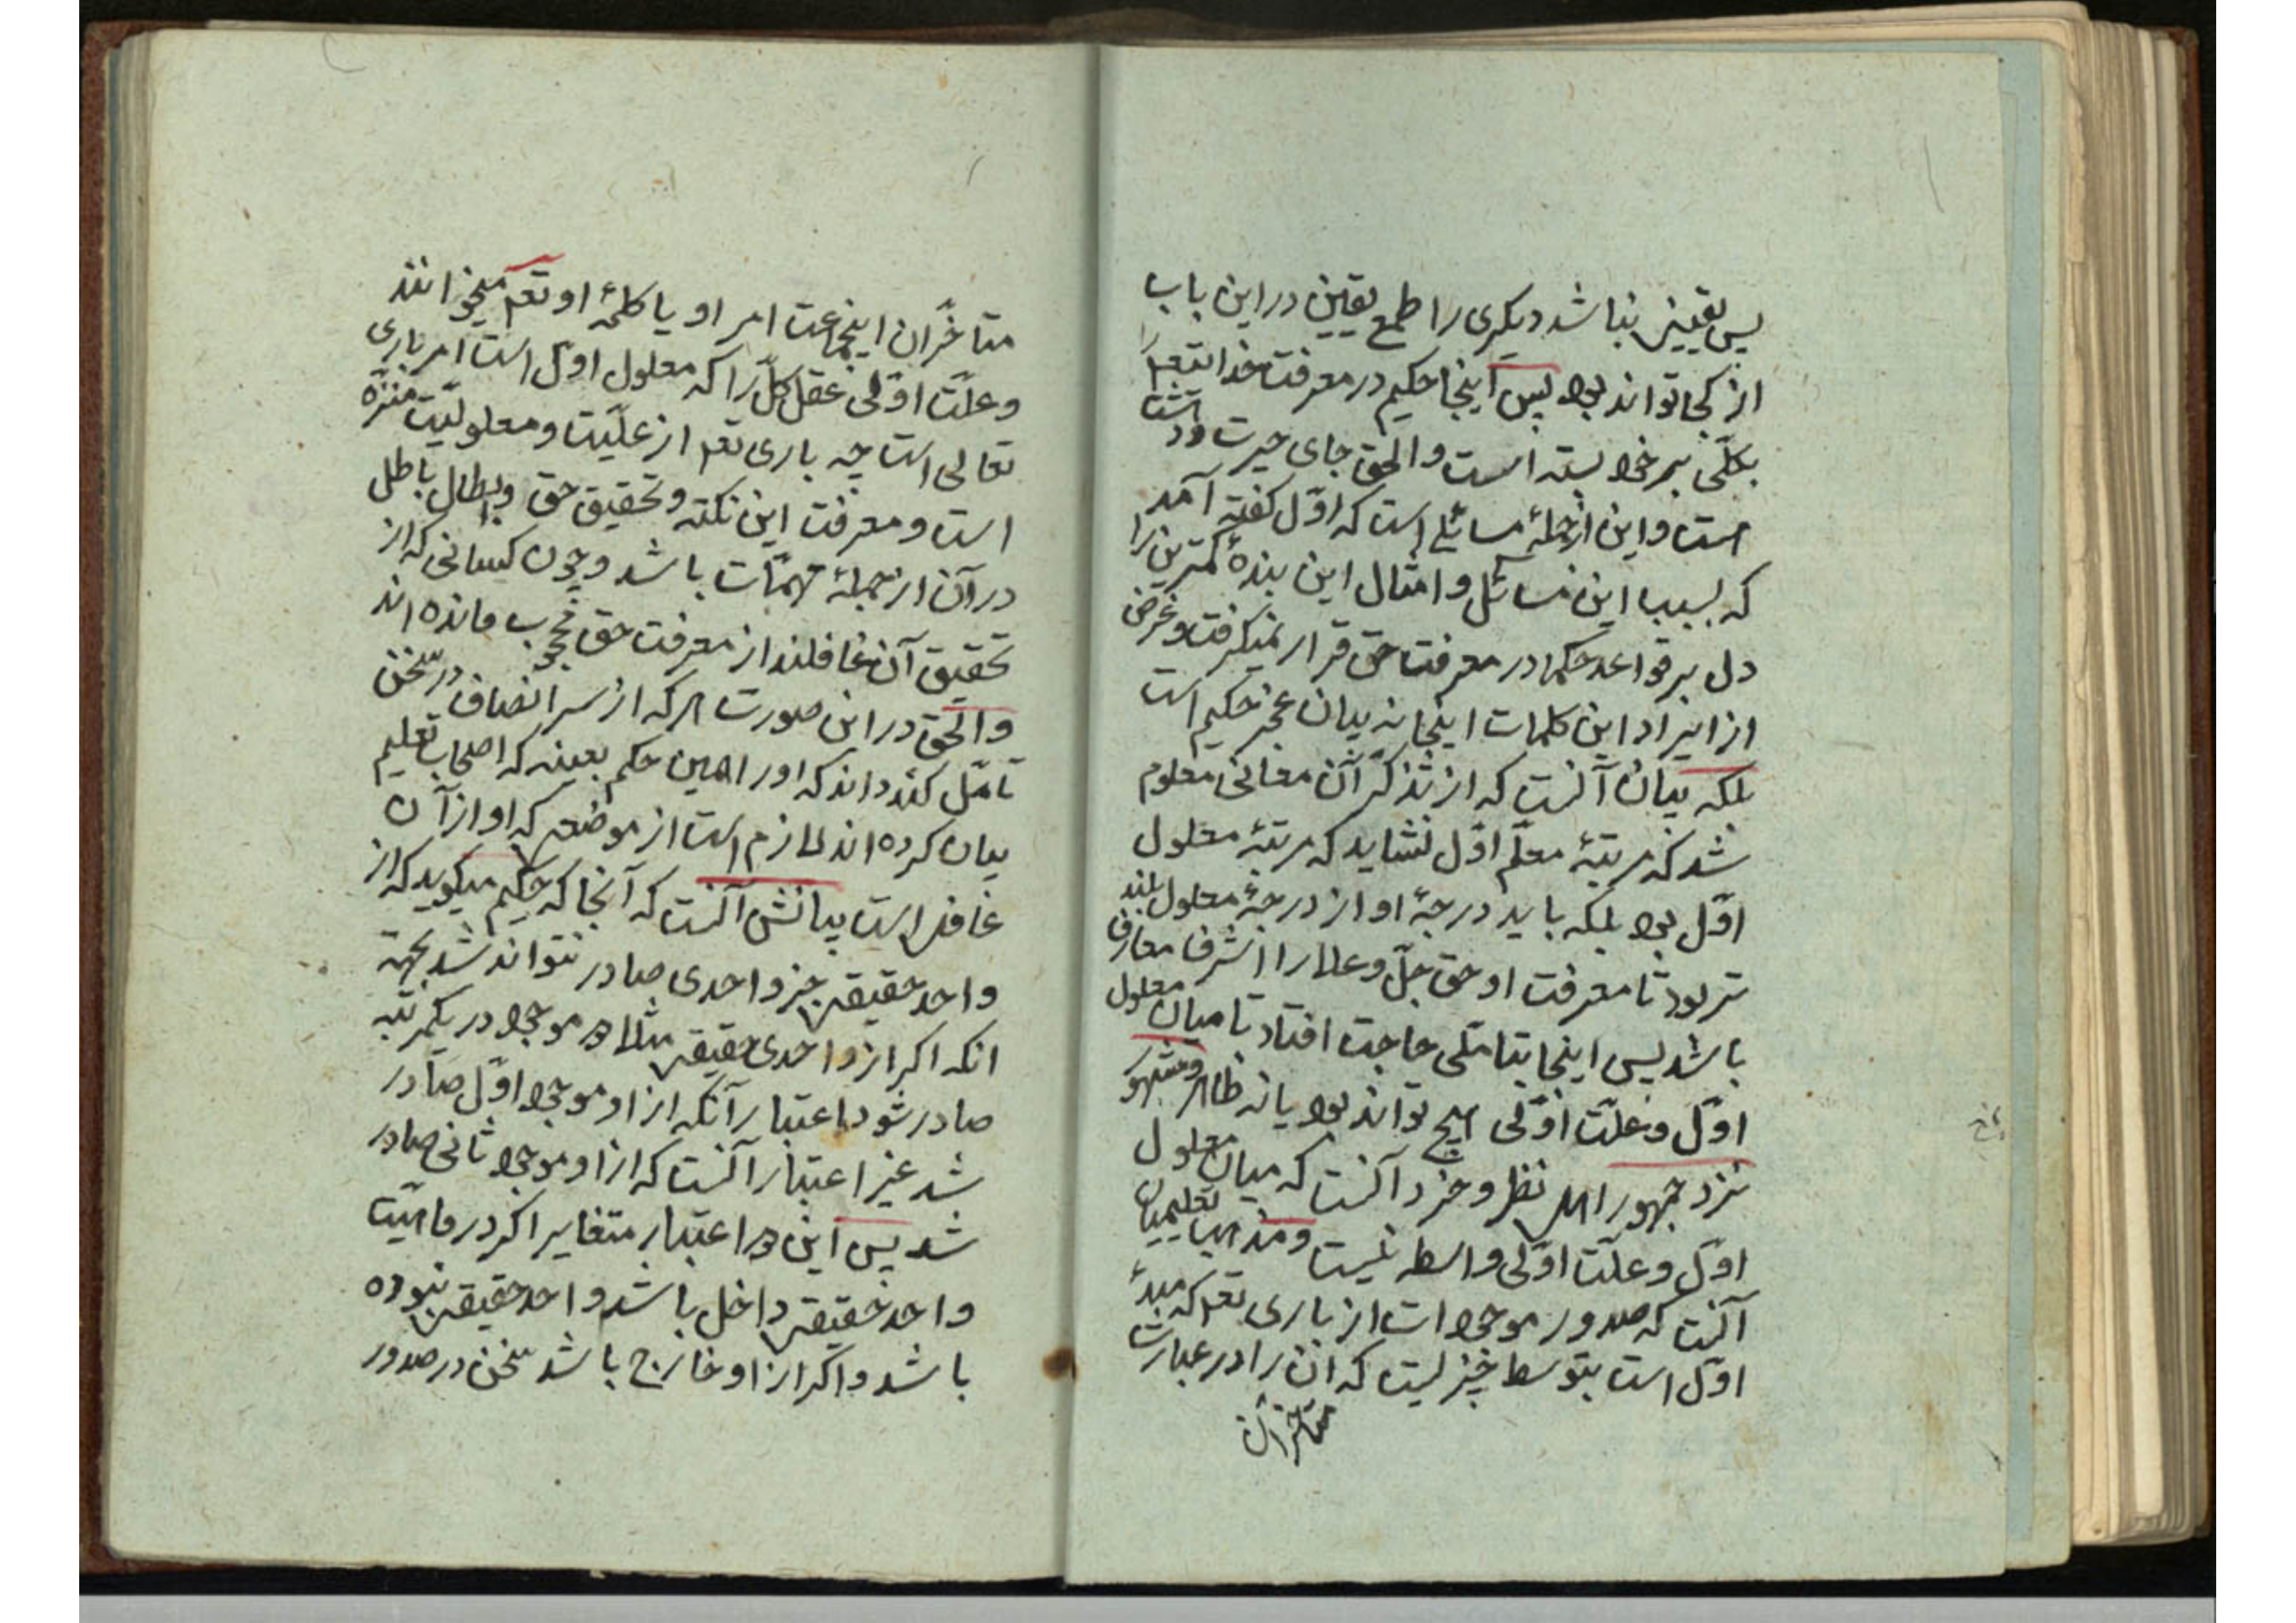 پس یقینی نباشد دیگری را طمع یقین در این باب
از کجا تواند بود پس اینجا حکیم در معرفت خدا تعم را
بکلّی بر خود بسته است والحق جای حیرت
است و این از جملهٔ مسائلی است که اوّل گفته آمد
که بسبب این مسائل و امثال این بندهٔ کمترین را
دل بر قواعد حکما در معرفت حق قرار نمیگرفت و غرض
از ایراد این کلمات اینجا نه بیان عجز حکیم است
بلکه بیان آنست که از تذکّر آن معانی معلوم
شد که مرتبهٔ معلّم اوّل نشاید که مرتبهٔ معلول
اوّل بود بلکه باید درجهٔ او از درجهٔ معلول بلند
تر بود تا معرفت او حق جلّ و علا را اشرف معارف
باشد پس اینجا بتأمّلی حاجت افتاد تا میان معلول
اوّل و علّت اوّلی هیچ تواند بود یا نه ظاهر و مشهور
نزد جمهور اهل نظر و خرد آنست که میان معلول
اوّل و علّت اوّلی واسطه نیست و مذهب تعلیمیان
آنست که صدور موجودات از باری تعم که مبدأ
اوّل است بتوسط چیزیست که آن را در عبارت
متأخران
متأخّران اینجماعت امر او یا کلمهٔ او تعم میخوانند
و علّت اوّلی عقل کلّ را که معلول اوّل است امر باری
تعالی است چه باری تعم از علّیّت و معلولیّت منزّه
است و معرفت این نکته و تحقیق حق و ابطال باطل
در آن از جملهٔ مهمّات باشد و چون کسانی که از
تحقیق آن غافلند از معرفت حق محجوب مانده اند
والحق در این صورت هر که از سر انصاف در سخن
تأمّل کند داند که او را همین حکم بعینه که اصحاب تعلیم
بیان کرده اند لازم است از موضعی که او از آن
غافل است بیانش آنست که آنجا که حکیم میگوید که از
واحد حقیقی جز واحدی صادر نتواند شد بجهة
انکه اکر از واحدی حقیقی مثلا دو موجود در یکمرتبه
صادر شود باعتبار آنکه از او موجود اوّل صادر
شد غیر اعتبار آنست که از او موجود ثانی صادر
شد پس این دو اعتبار متغایر اکر در ماهیّت
واحد حقیقی داخل باشد واحد حقیقی نبوده
باشد و اکر از او خارج باشد سخن در صدور